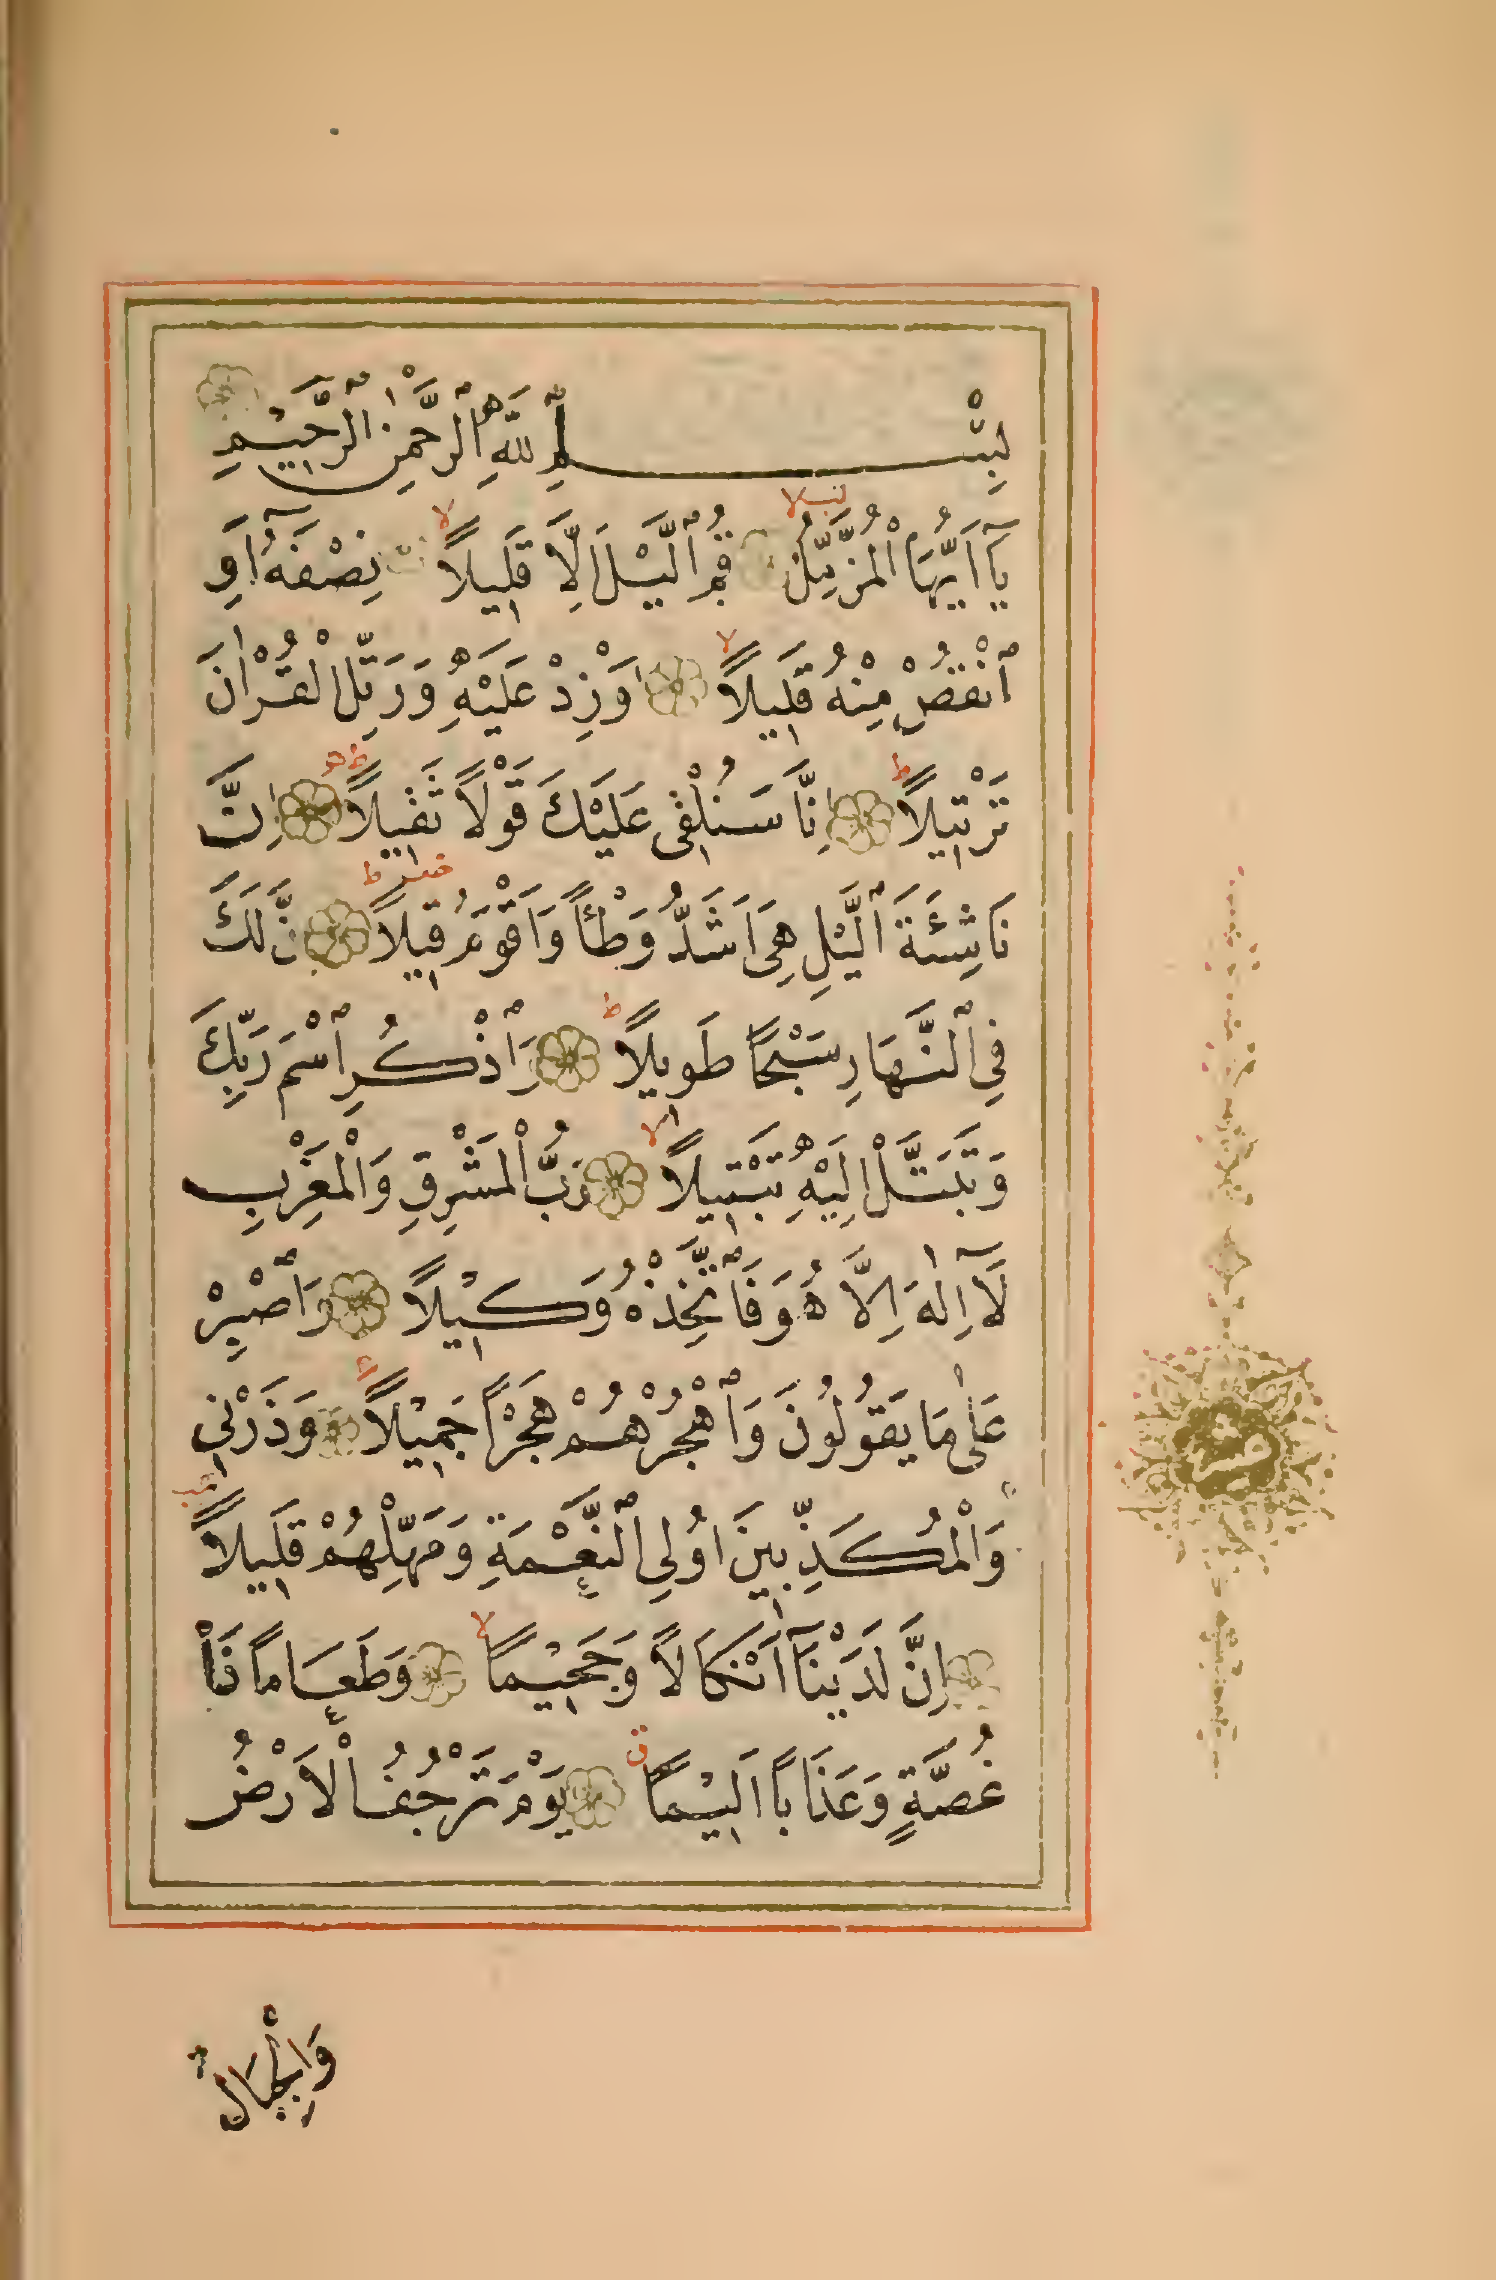 بِسْمِ ٱللّٰهِ ٱلرَّحْمٰنِ ٱلرَّحِيْمِ
يَآ اَيُّهَا الْمُزَّمِّلُ قُمِ ٱلَّيْلَ اِلَّا قَلِيلاً نِصْفَهُٓ اَوِ
ٱنْقُصْ مِنْهُ قَلِيلاً اَوْزِدْ عَلَيْهِ وَرَتِّلِ الْقُرْاٰنَ
تَرْتِيلاً اِنَّا سَنُلْقِى عَلَيْكَ قَوْلاً ثَقِيلاً اِنَّ
نَاشِئَةَ ٱلَّيْلِ هِىَ اَشَدُّ وَطْئاً وَاَقْوَمُ قِيلاً اِنَّ لَكَ
فِى ٱلنَّهَارِ سَبْحاً طَوِيلاً وَٱذْكُرِ ٱسْمَ رَبِّكَ
وَتَبَتَّلْ اِلَيْهِ تَبْتِيلاً رَبُّ الْمَشْرِقِ وَالْمَغْرِبِ
لَآ اِلٰهَ اِلَّا هُوَ فَٱتَّخِذْهُ وَكِيْلاً وَٱصْبِرْ
عَلٰى مَا يَقُولُونَ وَٱهْجُرْهُمْ هَجْرًا جَمِيْلاً وَذَرْنِي
وَالْمُكَذِّبِينَ اُولِى ٱلنَّعْمَةِ وَمَهِّلْهُمْ قَلِيلاً
اِنَّ لَدَيْنَآ اَنْكَالاً وَجَحِيْمًا وَطَعَامًا ذَا
غُصَّةٍ وَعَذَابًا اَلِيْمًا يَوْمَ تَرْجُفُ الْاَرْضُ
وَالْجِبَالُ